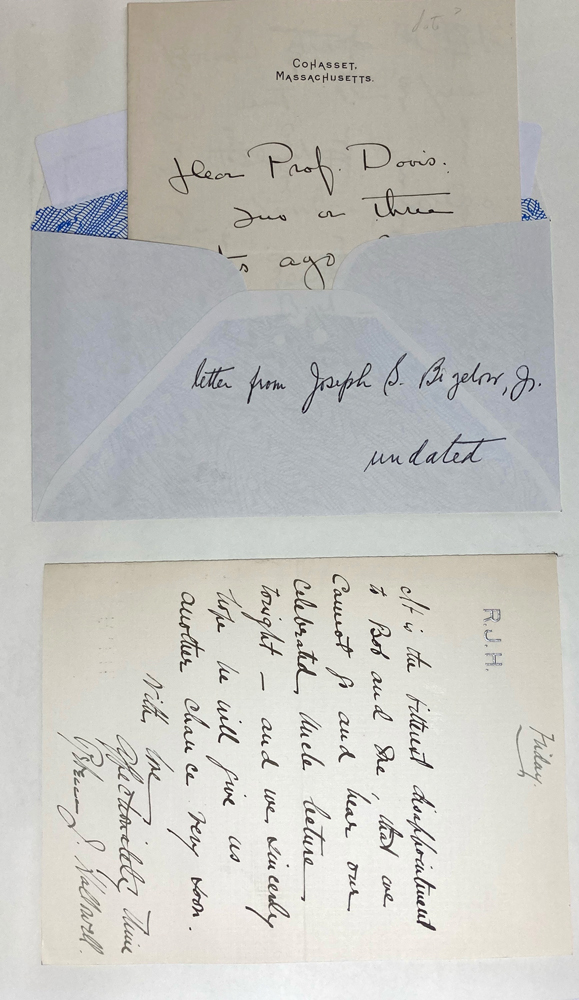 COHASSET,
MASSACHUSETTS.
Dear Prof. Davis:
Two or three
ago
letter from Joseph S. Bigelow, Jr.
undated
Friday.
R.J.H.
It is the bitterest disappointment
to Bob and me, that we
cannot go and hear our
celebrated Uncle lecture
tonight — and we sincerely
hope he will give us
another chance very soon.
With love
Affectionately Thine